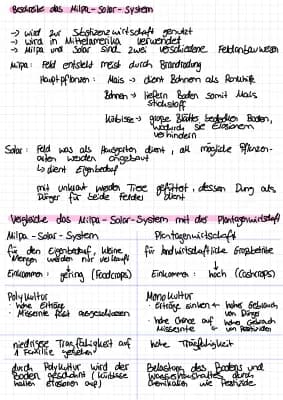 Beschreibe das Milpa-Solar-System
→ wird zur Subsistenzwirtschaft genutzt
→ wird in Mittelamerika verwendet
→ Milpa und Solar sind zwei verschiedene Feldanbauweisen
Milpa: Feld entsteht meist durch Brandrodung
Hauptpflanzen: Mais → dient Bohnen als Rankhilfe
Bohnen → liefern Boden somit Mais
Stickstoff
Kürbisse → große Blätter bedecken Boden,
wodurch sie Erosionen
verhindern
Solar: Feld was als Hausgarten dient, all mögliche Pflanzen-
arten werden angebaut
↳ dient Eigenbedarf
mit Unkraut werden Tiere gefüttert, dessen Dung als
Dünger für beide Felder dient
Vergleiche das Milpa-Solar-System mit der Plantagenwirtschaft
Milpa-Solar-System
für den Eigenbedarf, kleine
Mengen werden nur verkauft
Einkommen: gering (Foodcrops)
Polykultur
• hohe Erträge
• Missernte fast ausgeschlossen
niedrigere Tragfähigkeit auf
1 Familie gesehen
durch Polykultur wird der
Boden geschont (Kürbisse
halten Erosionen auf)
Plantagenwirtschaft
für landwirtschaftliche Großbetriebe
Einkommen: hoch (Cashcrops)
Monokultur
• Erträge sinken ← hoher Gebrauch
von Dünger
• hohe Chance auf hoher Gebrauch
Missernte von Pestiziden
hohe Tragfähigkeit
Belastung des Bodens und
Wasserhaushaltes durch
Chemikalien wie Pestizide